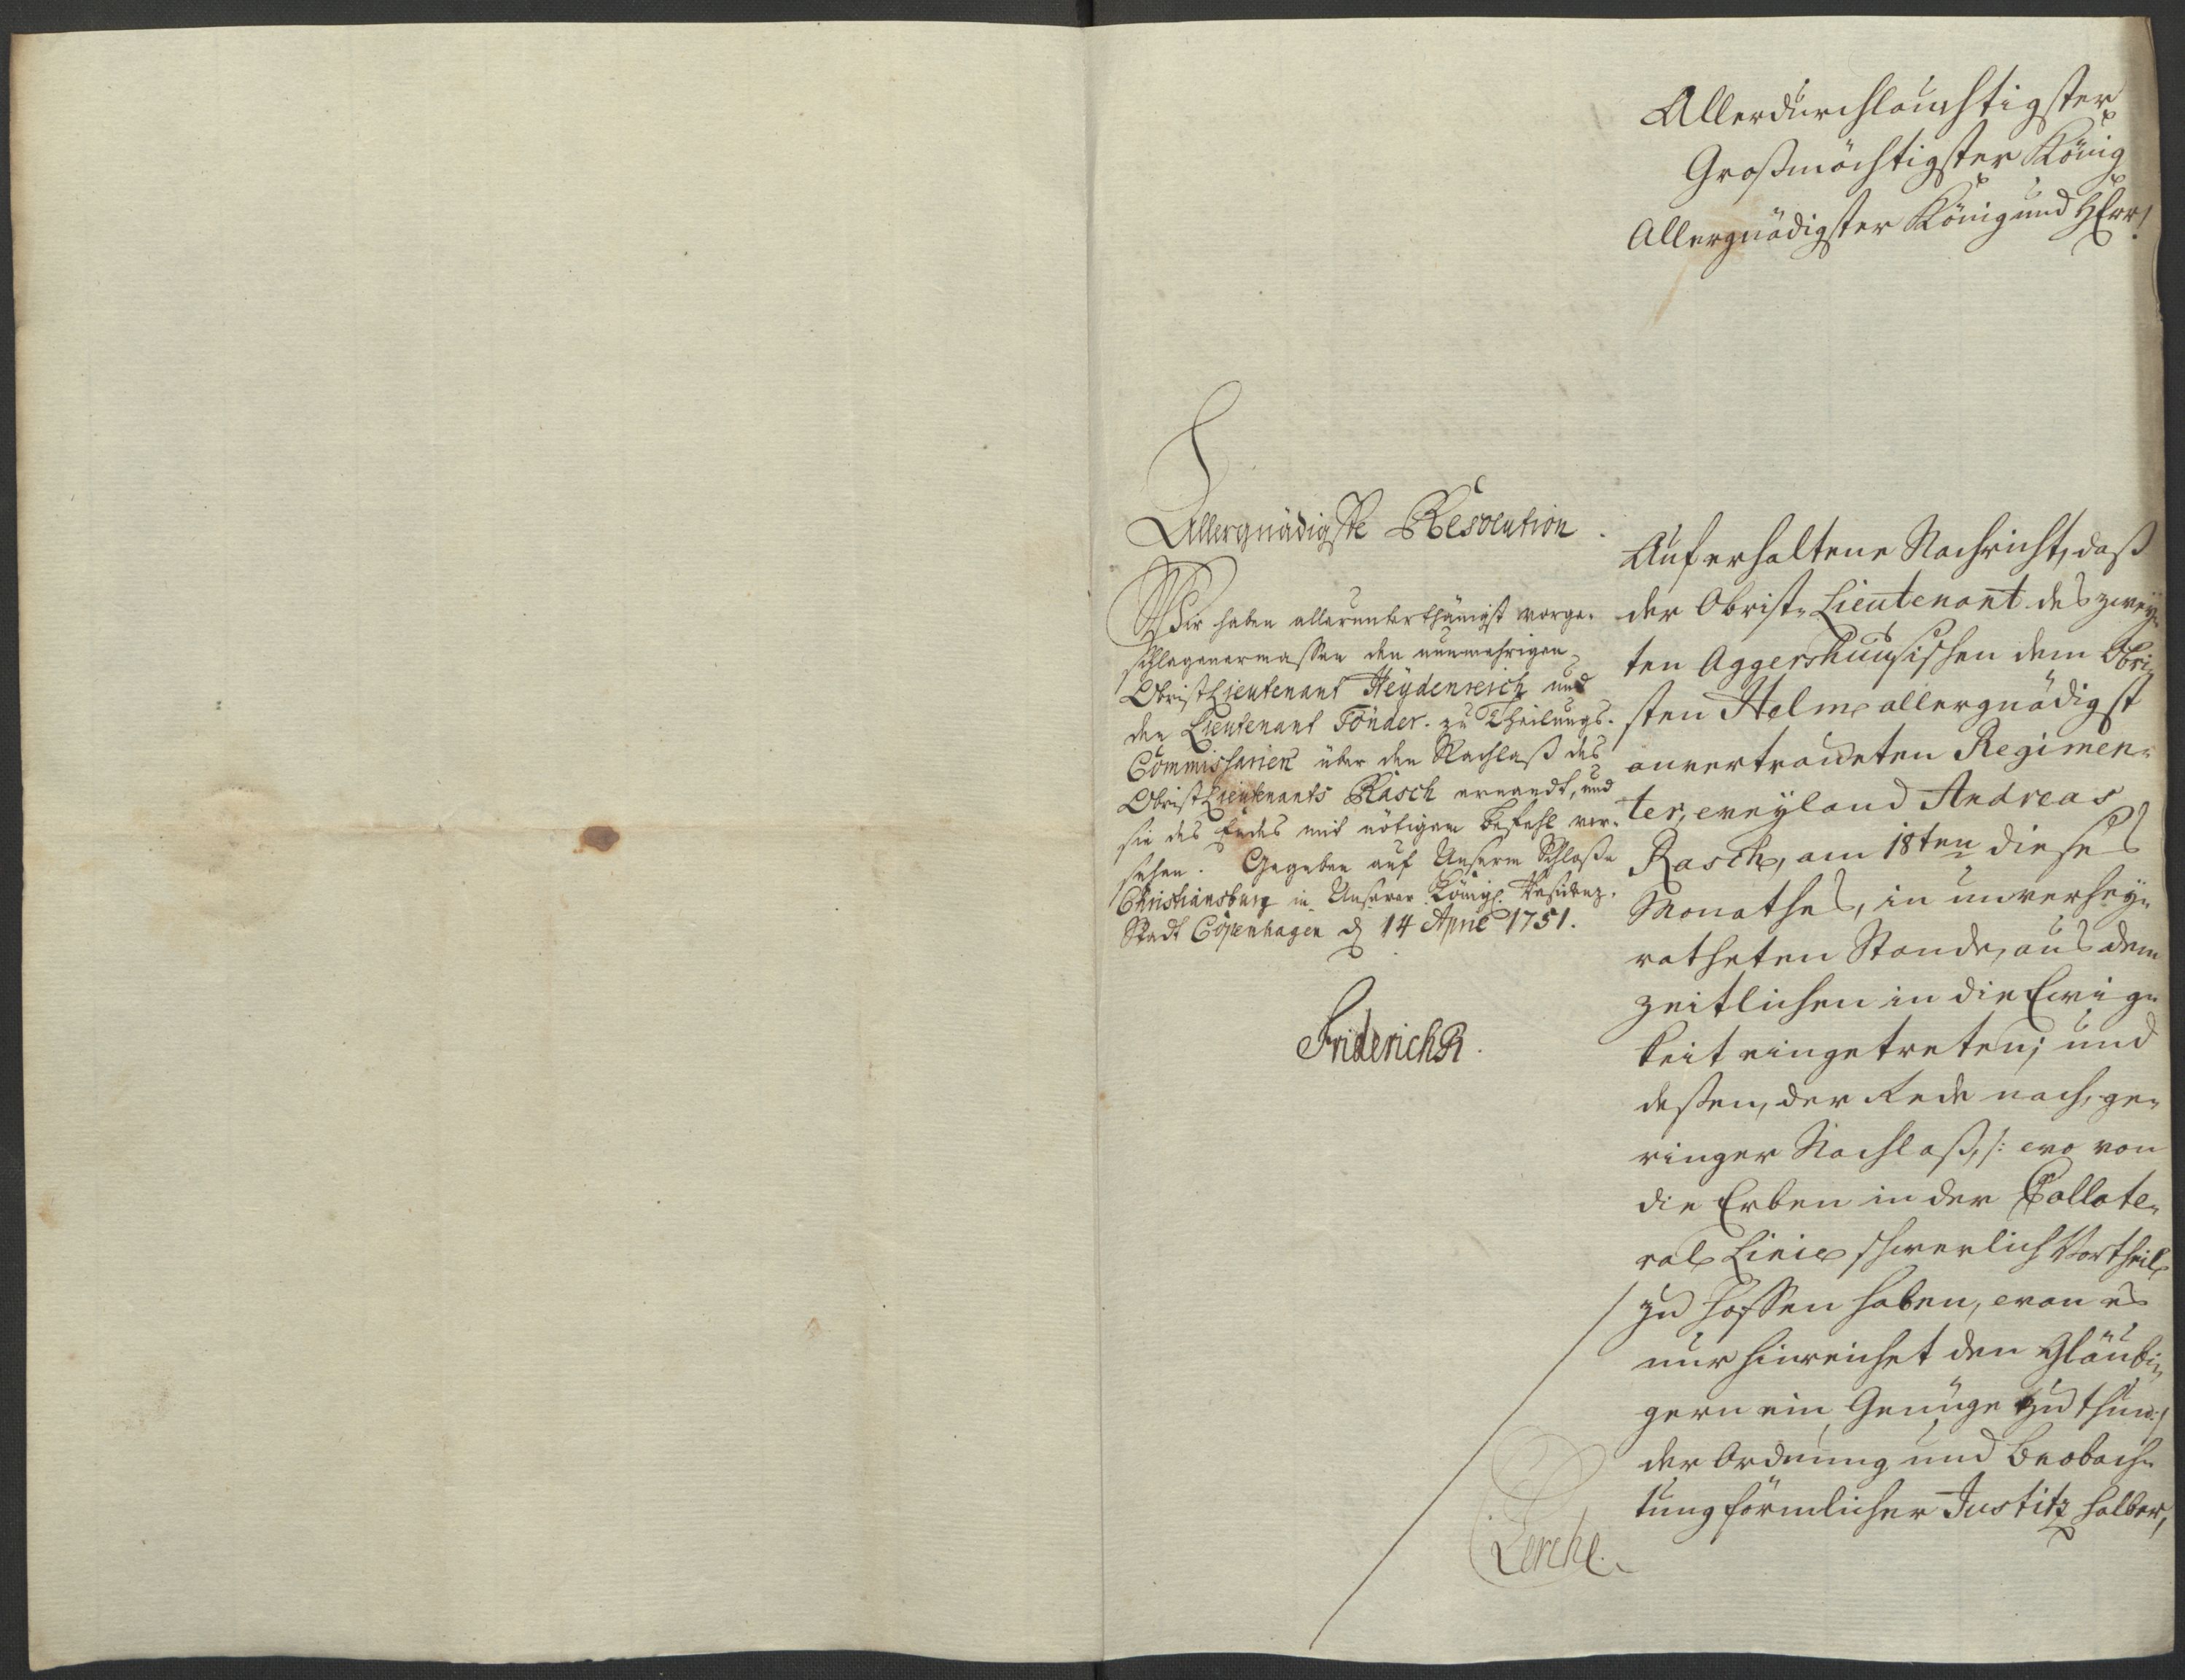 Allerdurchlauchtigster
Großmächtigster König
Allergnädigster König und HErr!
Allergnädigste Resolution.
Wir haben allerunterthänigst vorge-
schlagenermassen den nunmehrigen
ObristLieutenant Heydenreich und
den Lieutenant Tönder zu Theilungs-
Commissarien über den Nachlaß des
ObristLieutenants Rasch ernandt, und
sie des Endes mit nötigem Befehl ver-
sehen. Gegeben auf Unserm Schloße
Christiansburg in Unserer Königl. Residenz-
Stadt Copenhagen d 14 April 1751.
FriderichR.
Lerche.
Auf erhaltene Nachricht, daß
der Obrist-Lieutenant des zwey-
ten Aggershuusischen dem Obri-
sten Helm allergnädigst
anvertraueten Regimen-
ter, weyland Andreas
Rasch, am 18ten dieses
Monathes, in unverhey-
ratheten Stande, aus dem
zeitlichen in die Ewig-
keit eingetreten; und
deßen, der Rede nach, ge-
ringer Nachlaß, /: wo von
die Erben in der Collate-
ral Linie schwerlich Vortheil
zu hoffen haben, wan es
nur hinreichet den Gläubi-
gern ein Genüge zu thun :/
der Ordnung und Beobach-
tung förmlicher Justitz halber,